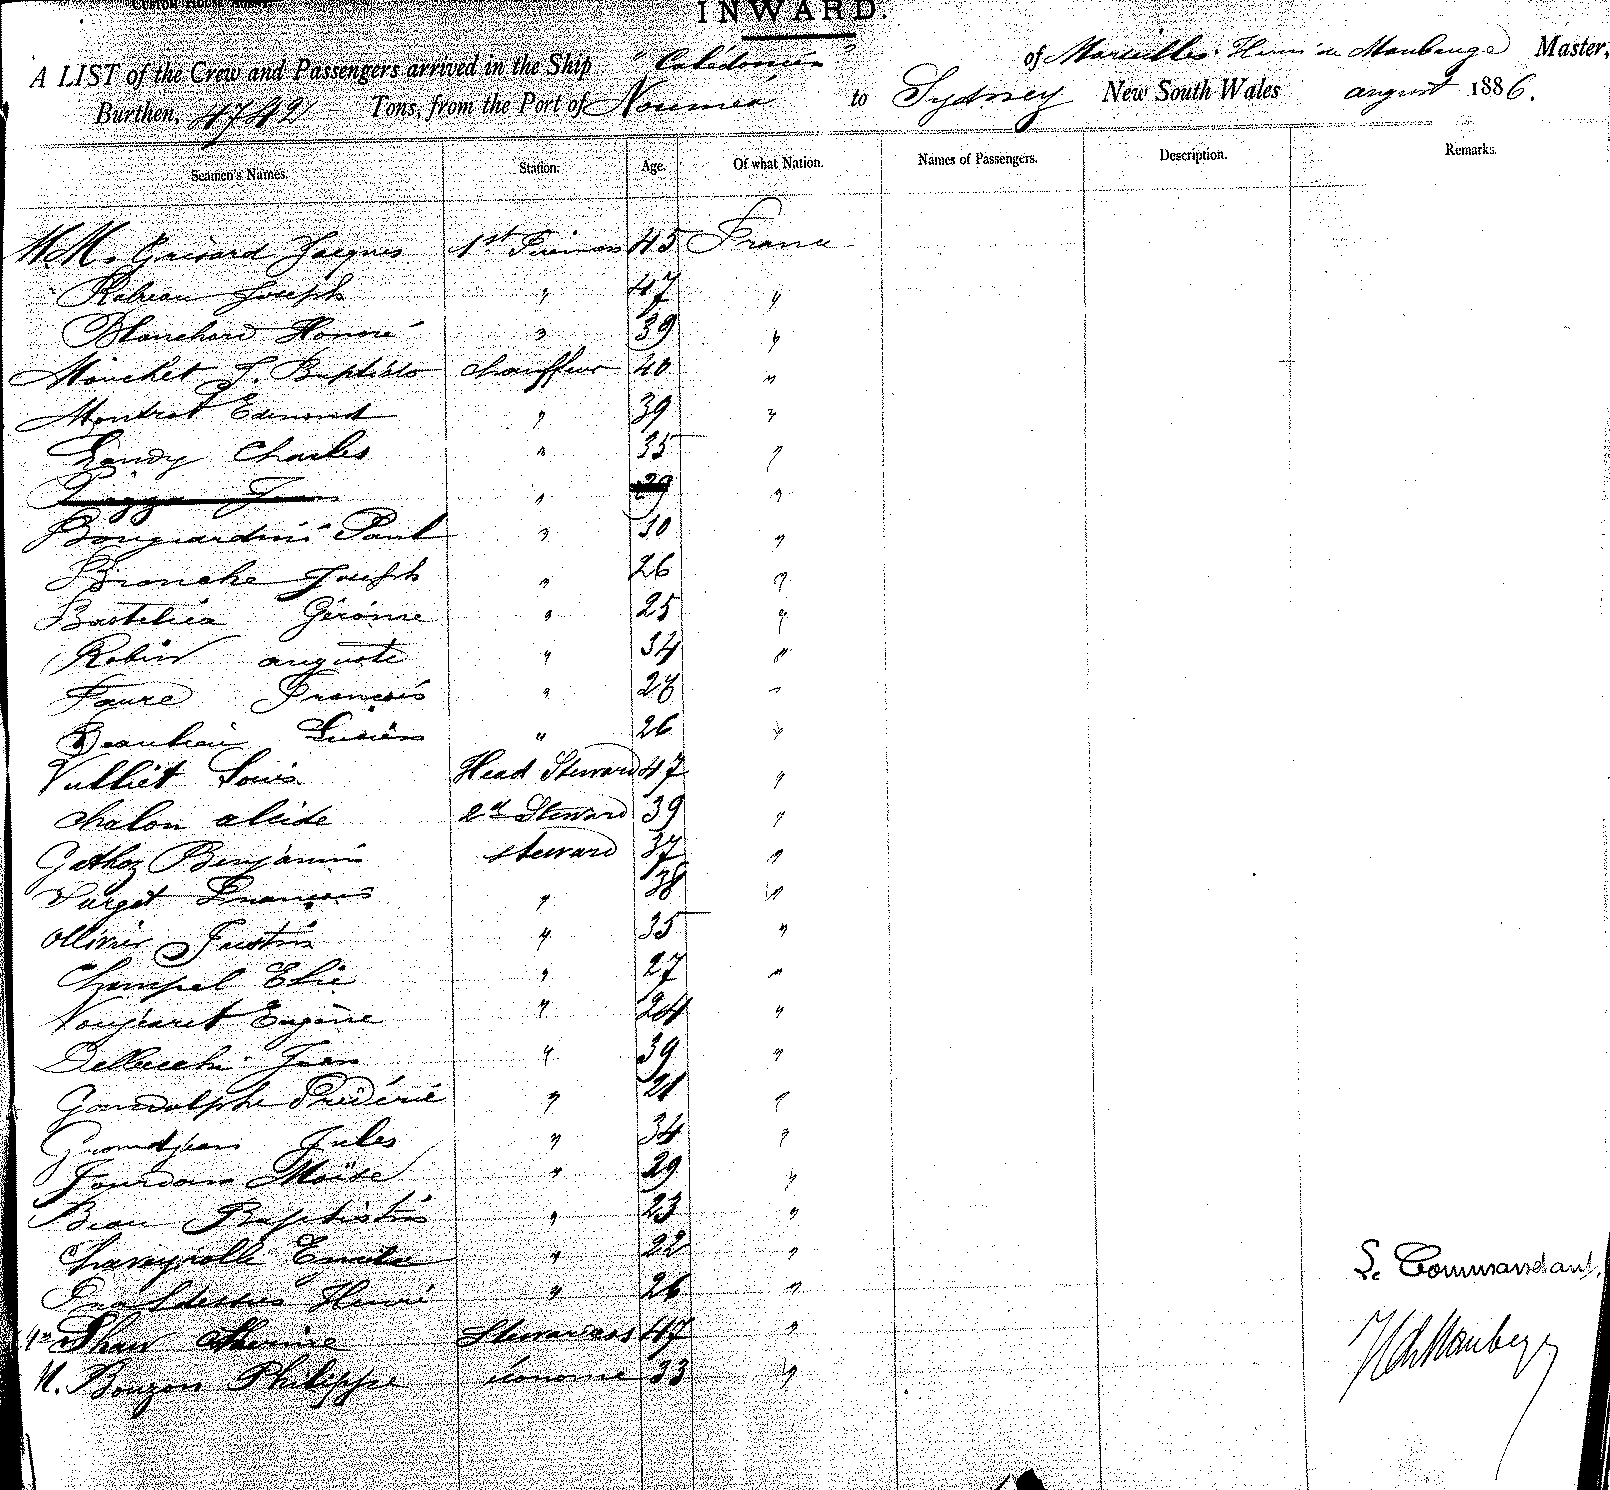 CUSTOM HOUSE
INWARD.
A LIST of the Crew and Passengers arrived in the Ship "Calédonien" of Marseilles. Henri de Maubeuge Master,
Burthen, 4742 Tons, from the Port of Noumea to Sydney New South Wales august 1886.
Seamen's Names. Station. Age. Of what Nation. Names of Passengers. Description. Remarks.
M.M. Guisard Jacques 1st Firiman 45 France
Joseph " 47 "
Blanchard Honoré " 39 "
Mouchet J. Baptiste chauffeur 40 "
Montrat Edmond " 39 "
Landy Charles " 35 "
" 29 "
Bongiardini Paul " 30 "
Branche Joseph " 26 "
Bastelica Jérôme " 25 "
Robin auguste " 34 "
Faure François " 28 "
Lucien " 26 "
Vulliet Louis Head Steward 47 "
chalon alcide 2d Steward 39 "
Gathoz Benjamin steward 37 "
Varget François " 38 "
ollivier Justin " 35 "
Champel Elie " 27 "
Noujaret Eugène " 24 "
Dellucchi Jean " 39 "
Gandolphe Frédéric " 21 "
Grandjean Jules " 34 "
Jourdan Moïse " 29 "
Beau Baptistin " 23 "
Chareyrolle Emile " 22 "
Henri " 26 "
Stewardess 47 "
M. Bouzon Philippe 33 "
Le Commandant,
H de Maubeuge